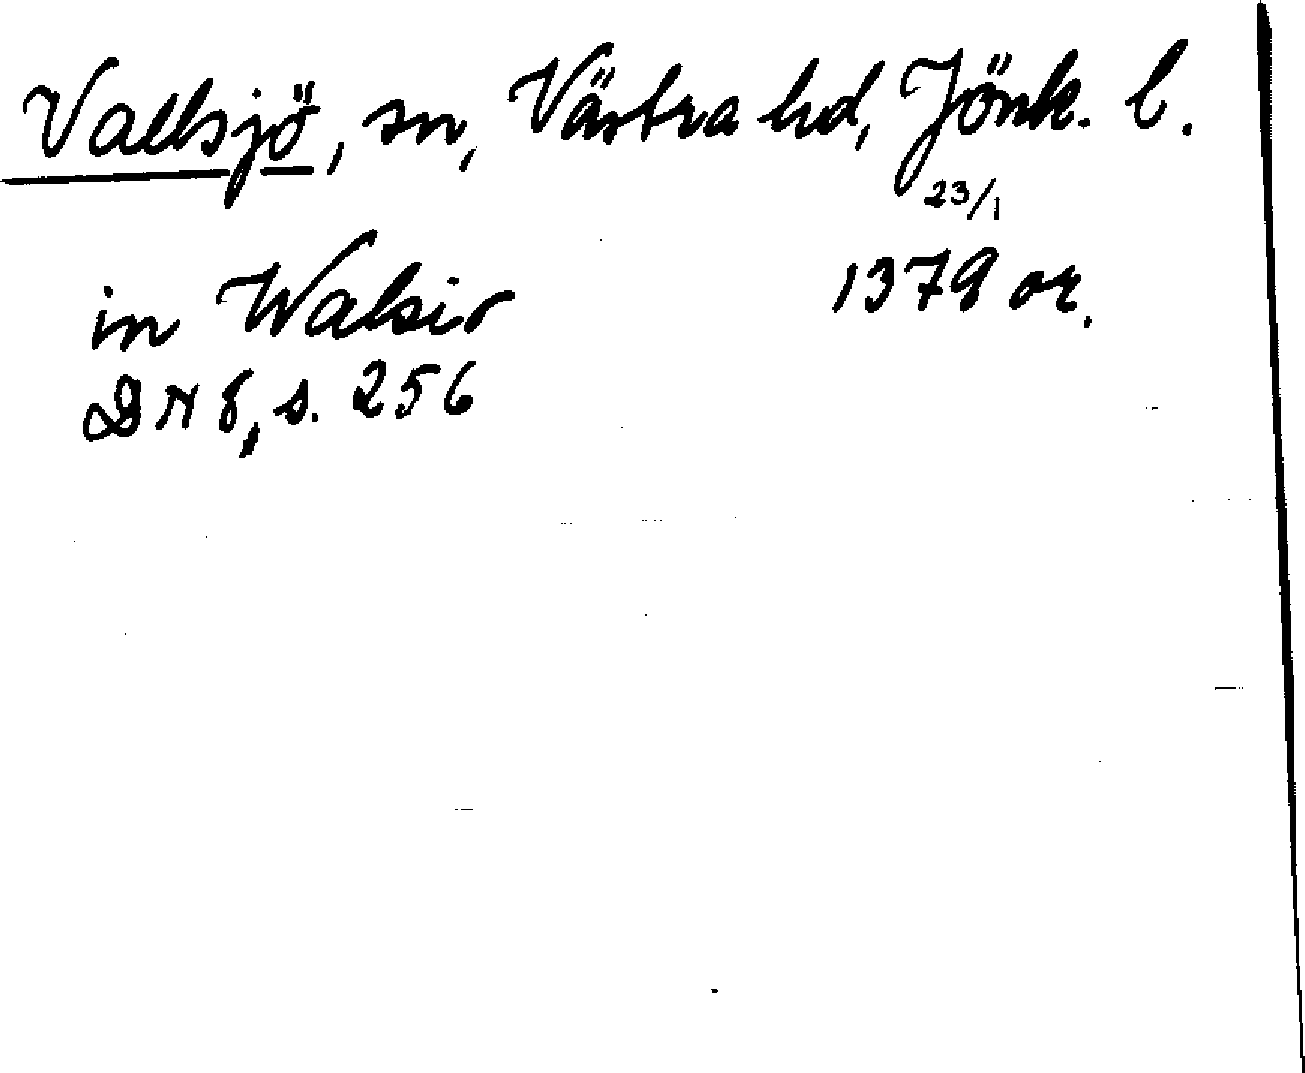 Vallsjö, sn, Västra hd, Jönk. l.
23/1
in Walsio 1379 or.
DN 8, s. 256